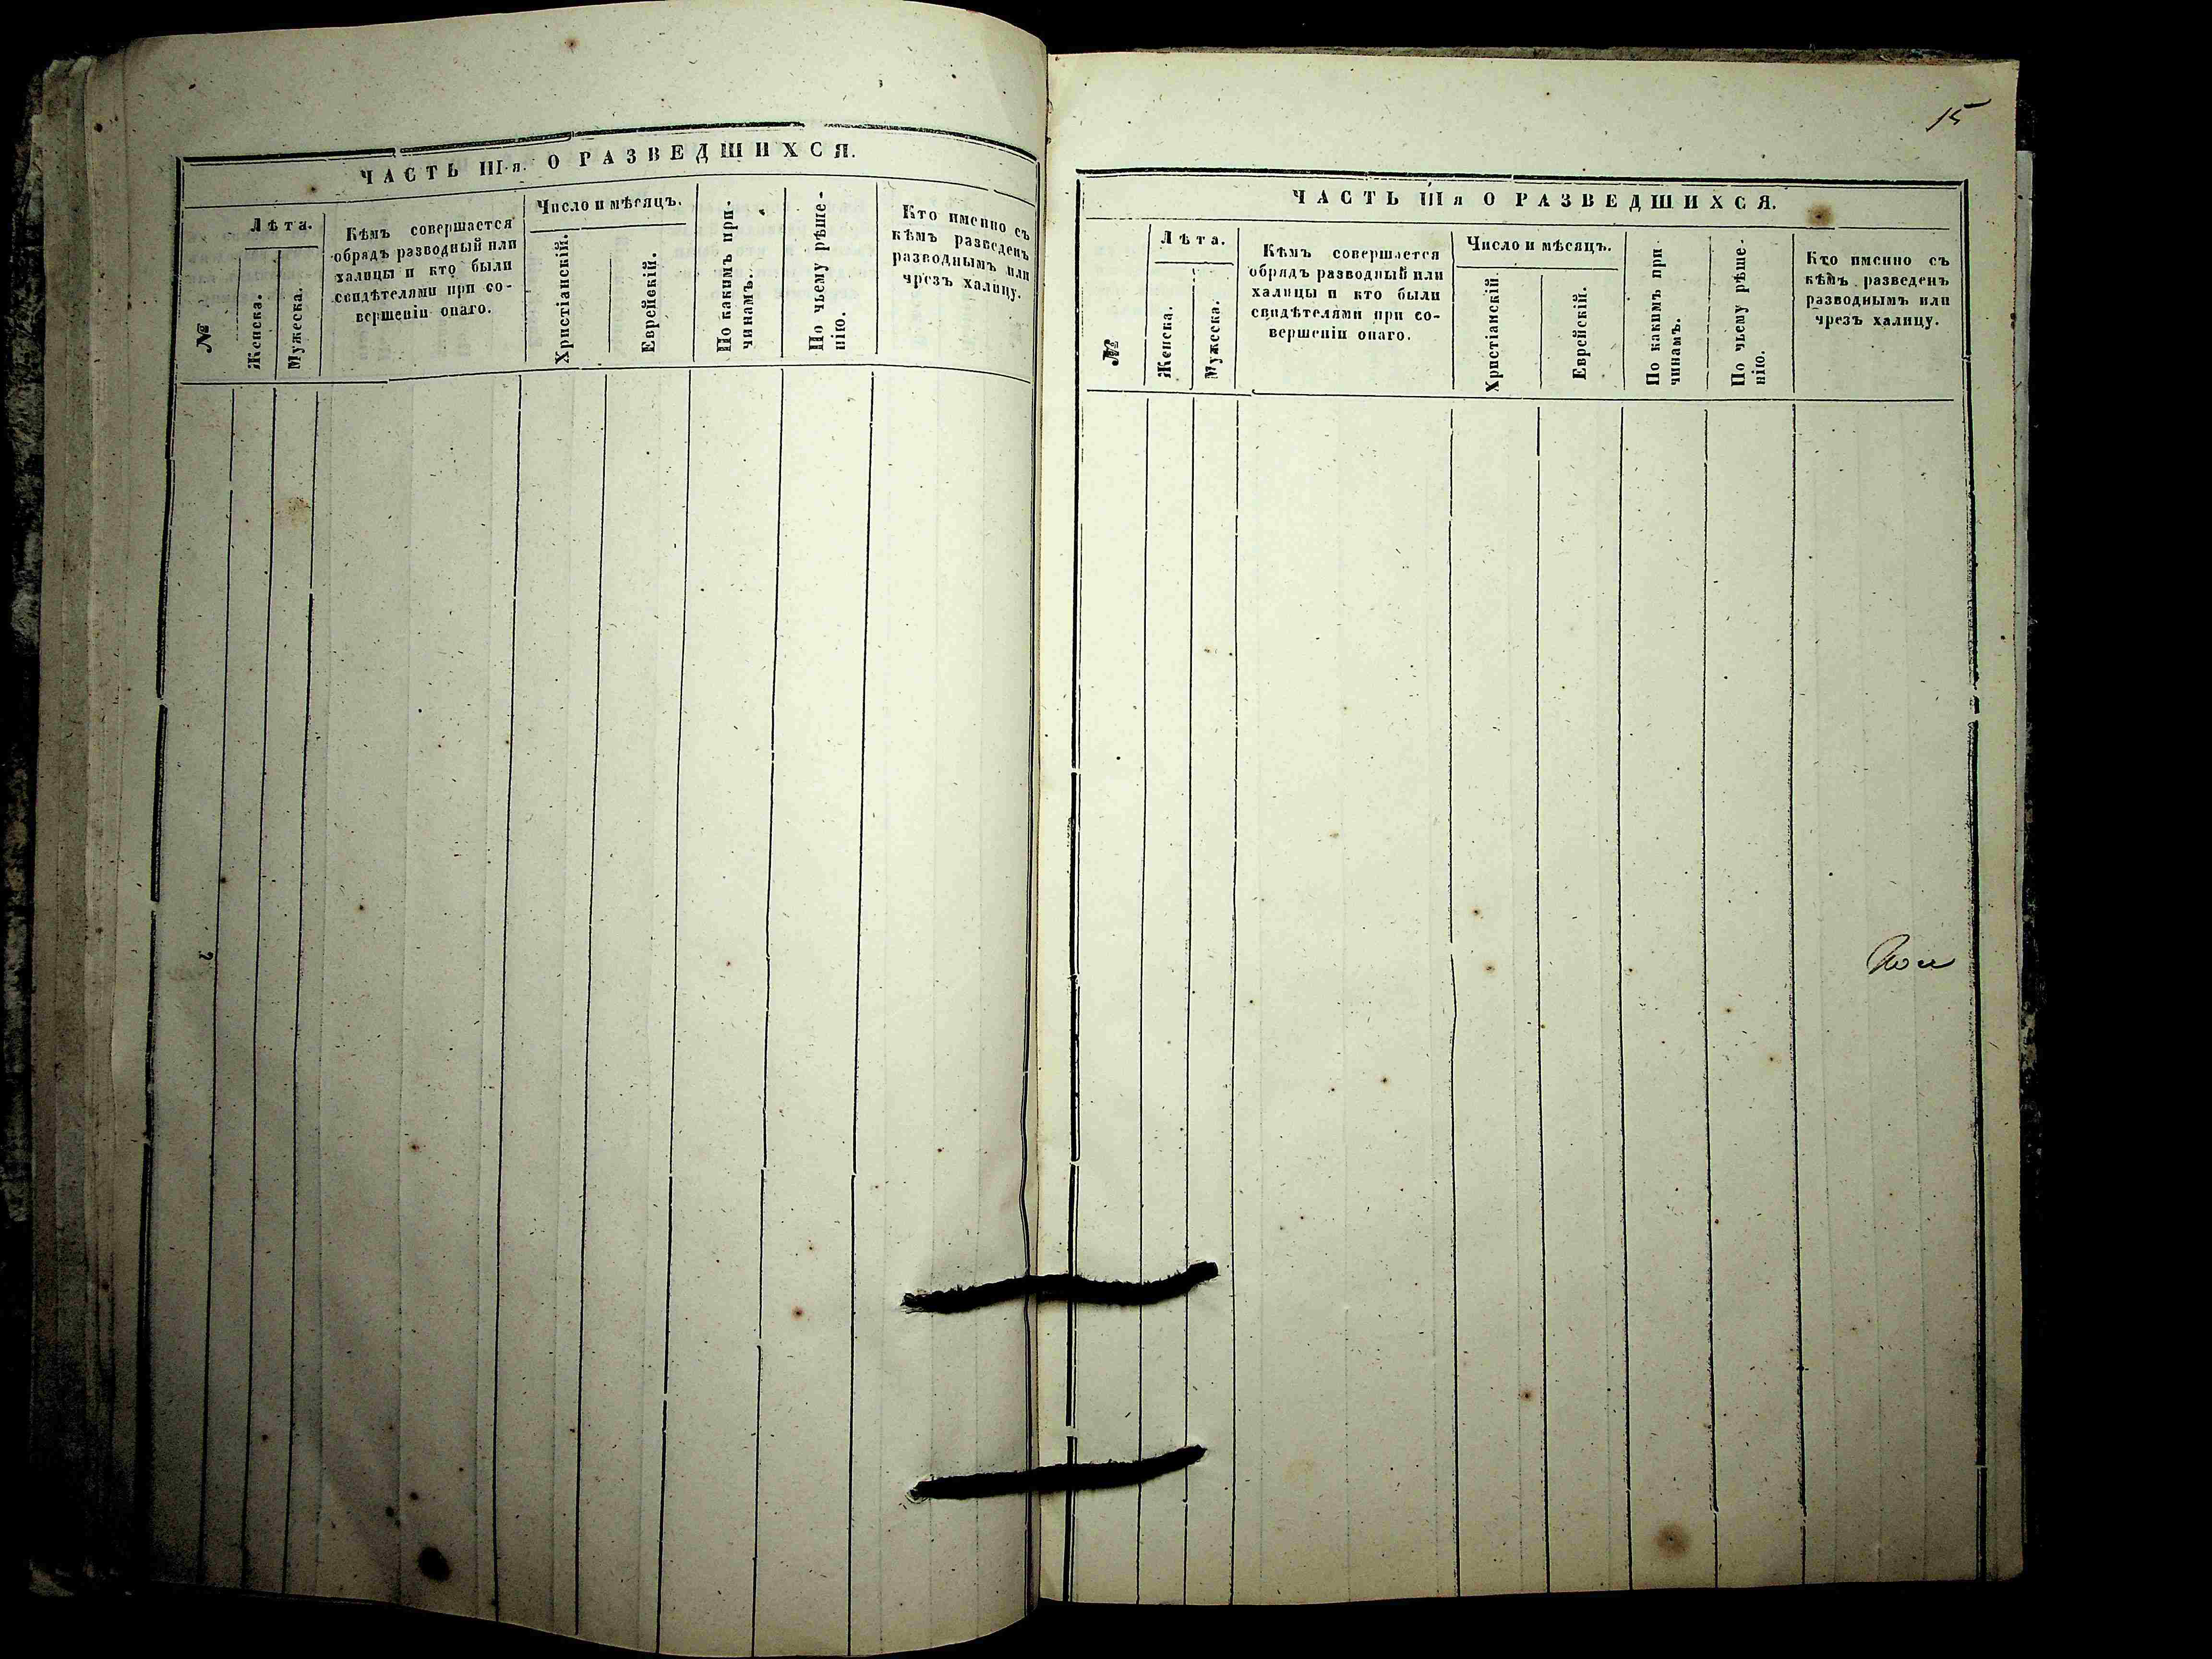 ЧАСТЬ III-я. О РАЗВЕДШИХСЯ.
№
Лѣта.
Женска.
Мужеска.
Кѣмъ совершается
обрядъ разводный или
халицы и кто были
свидѣтелями при со-
вершеніи онаго.
Число и мѣсяцъ.
Христіанскій.
Еврейскій.
По какимъ при-
чинамъ.
По чьему рѣше-
нію.
Кто именно съ
кѣмъ разведенъ
разводнымъ или
чрезъ халицу.
15
ЧАСТЬ III я О РАЗВЕДШИХСЯ.
№
Лѣта.
Женска.
Мужеска.
Кѣмъ совершается
обрядъ разводный или
халицы и кто были
свидѣтелями при со-
вершеніи онаго.
Число и мѣсяцъ.
Христіанскій.
Еврейскій.
По какимъ при-
чинамъ.
По чьему рѣше-
нію.
Кто именно съ
кѣмъ разведенъ
разводнымъ или
чрезъ халицу.